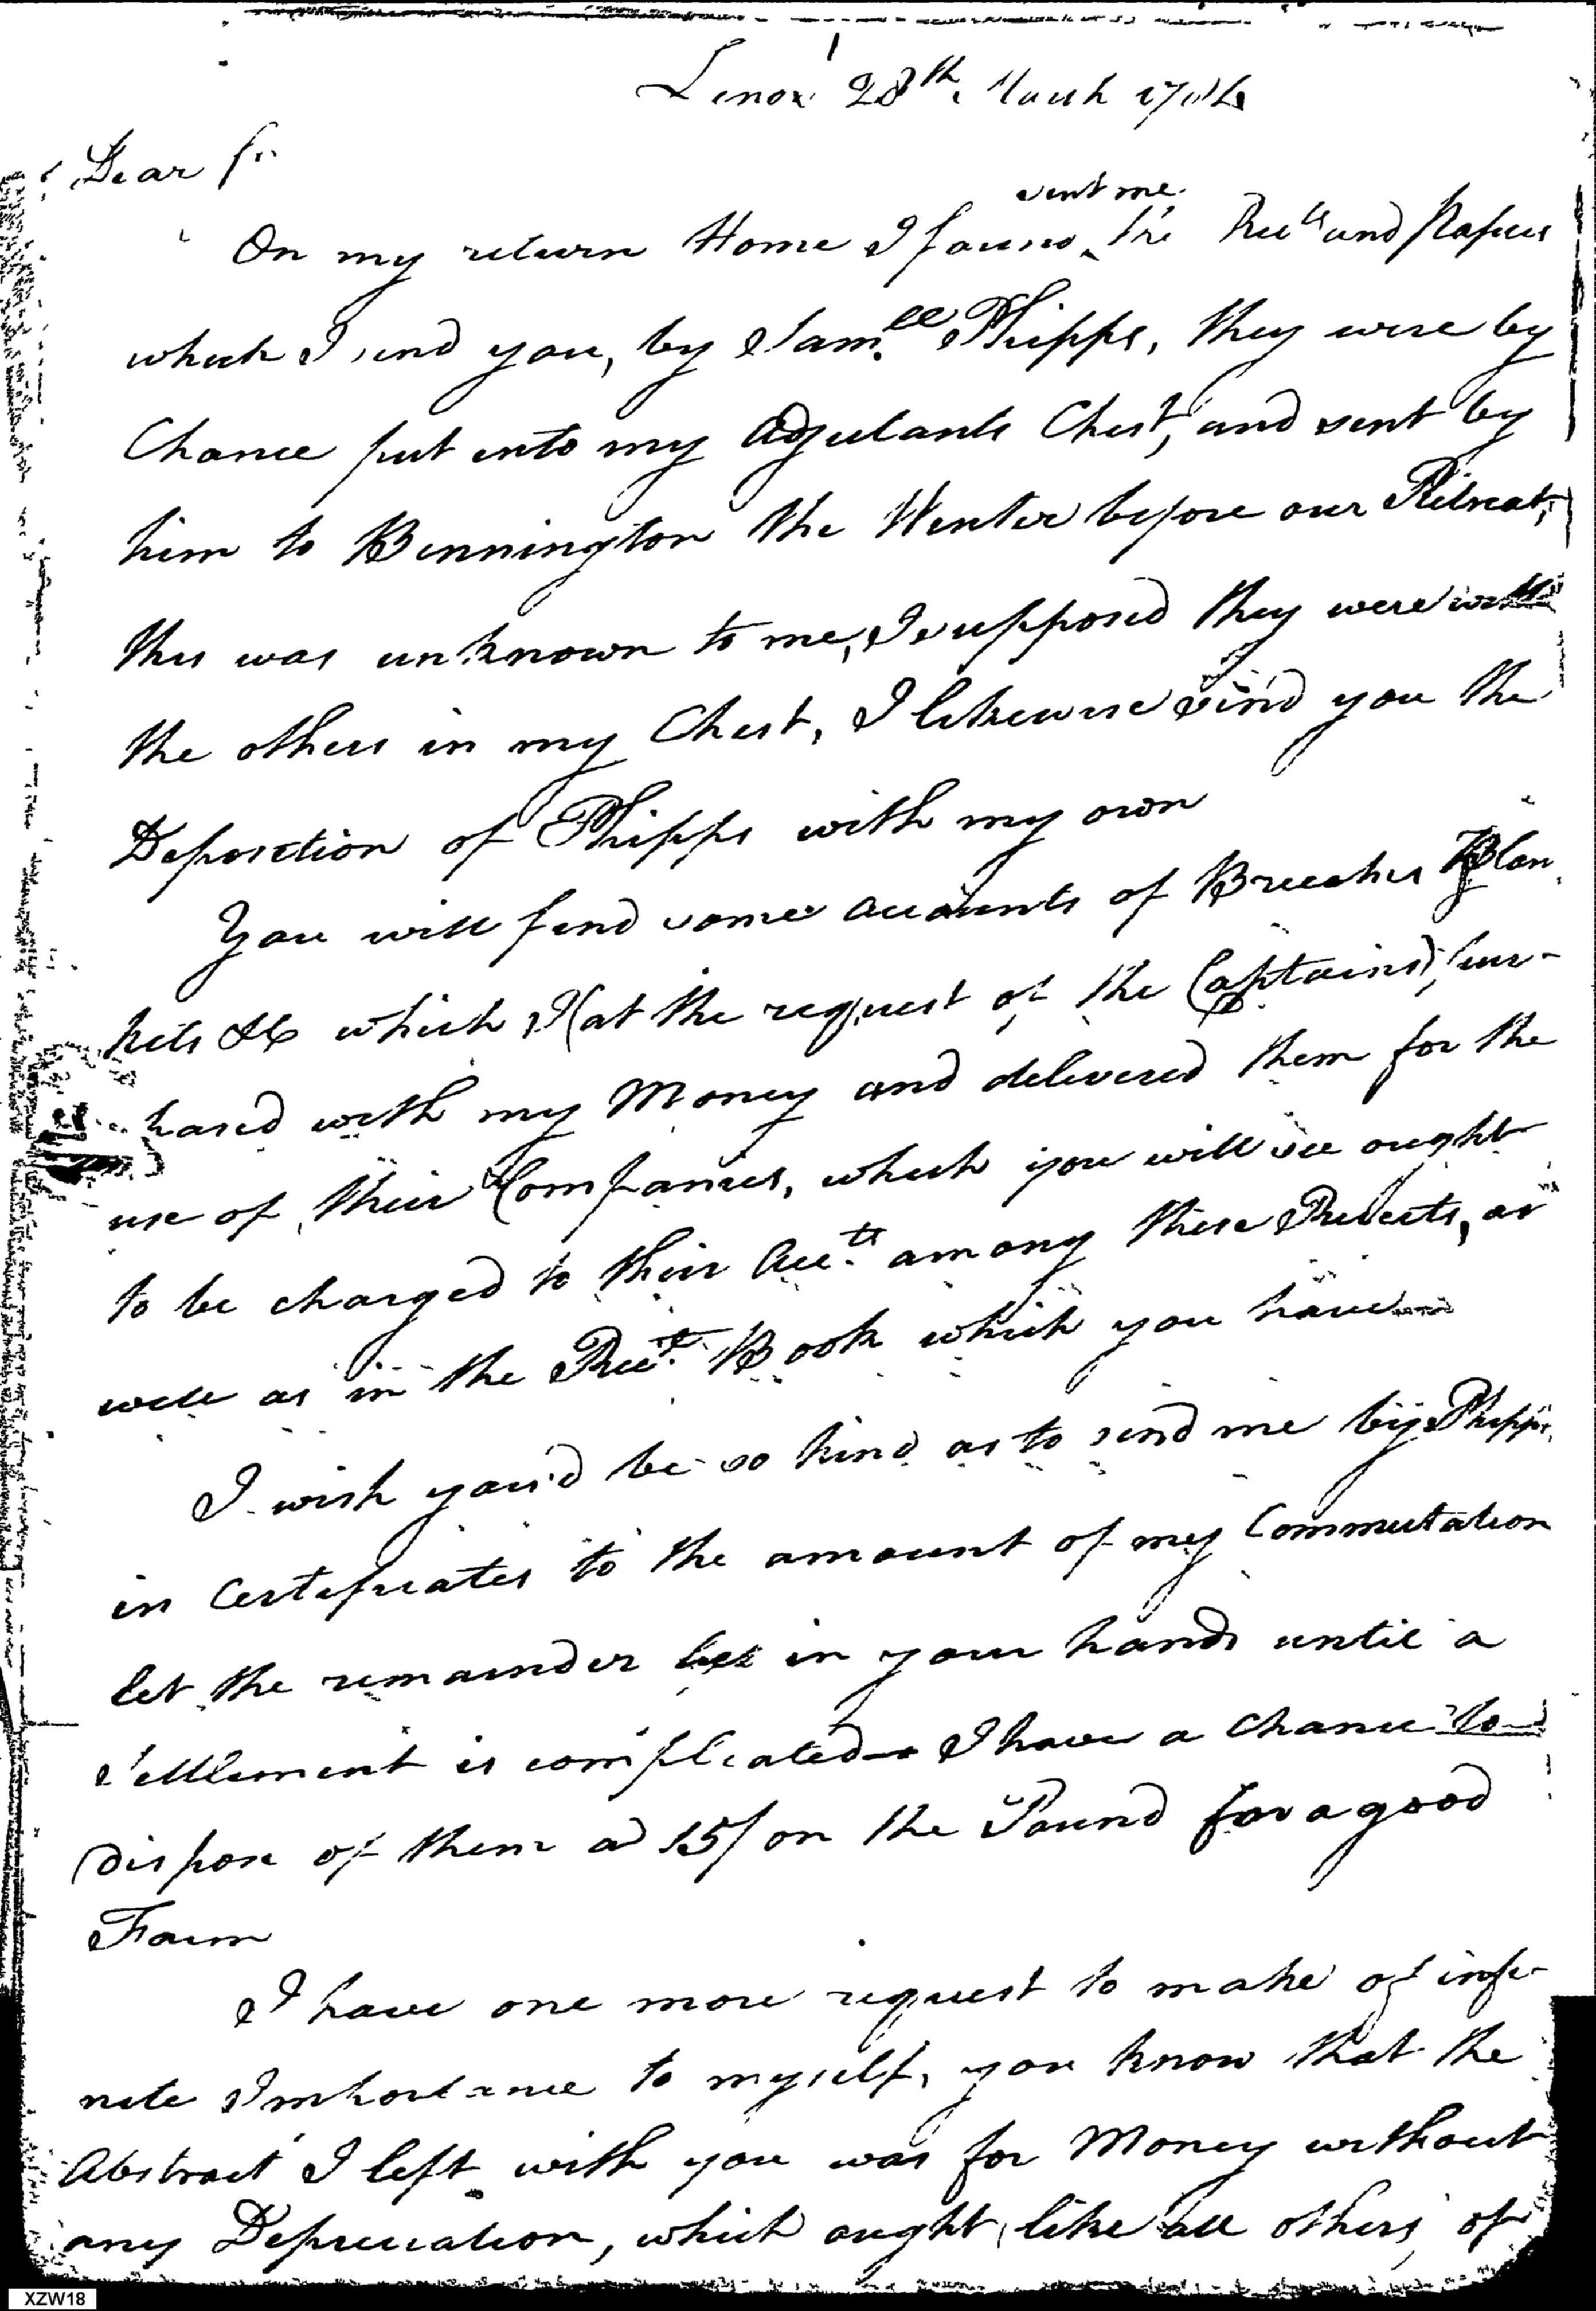 Lenox 28th. March 1784
Dear Sir
sent me
On my return Home I found the Rec.ts and Papers
which I send you, by Sam.ll Phipps, they were by
Chance put into my Adjutants Chest, and sent by
him to Bennington the Winter before our Retreat,
this was unknown to me, I supposed they were with
the others in my Chest, I likewise send you the
Deposition of Phipps with my own
You will find some accounts of Breeches Blan
kets &c which I (at the request of the Captains) pur-
chased with my Money and delivered them for the
use of their Companies, which you will see ought
to be charged to their Acc.ts among these Receets, as
well as in the Rec.t Book which you have
I wish you'd be so kind as to send me by Phipps
in Certificates to the amount of my Commutation
let the remainder in your hands until a
settlement is compleated I have a chance to
dispose of them a 15/ on the Pound for a good
Farm
I have one more request to make of infi-
nite Importance to myself, you know that the
Abstract I left with you was for Money without
any Depreciation, which ought like all others, of
XZW18